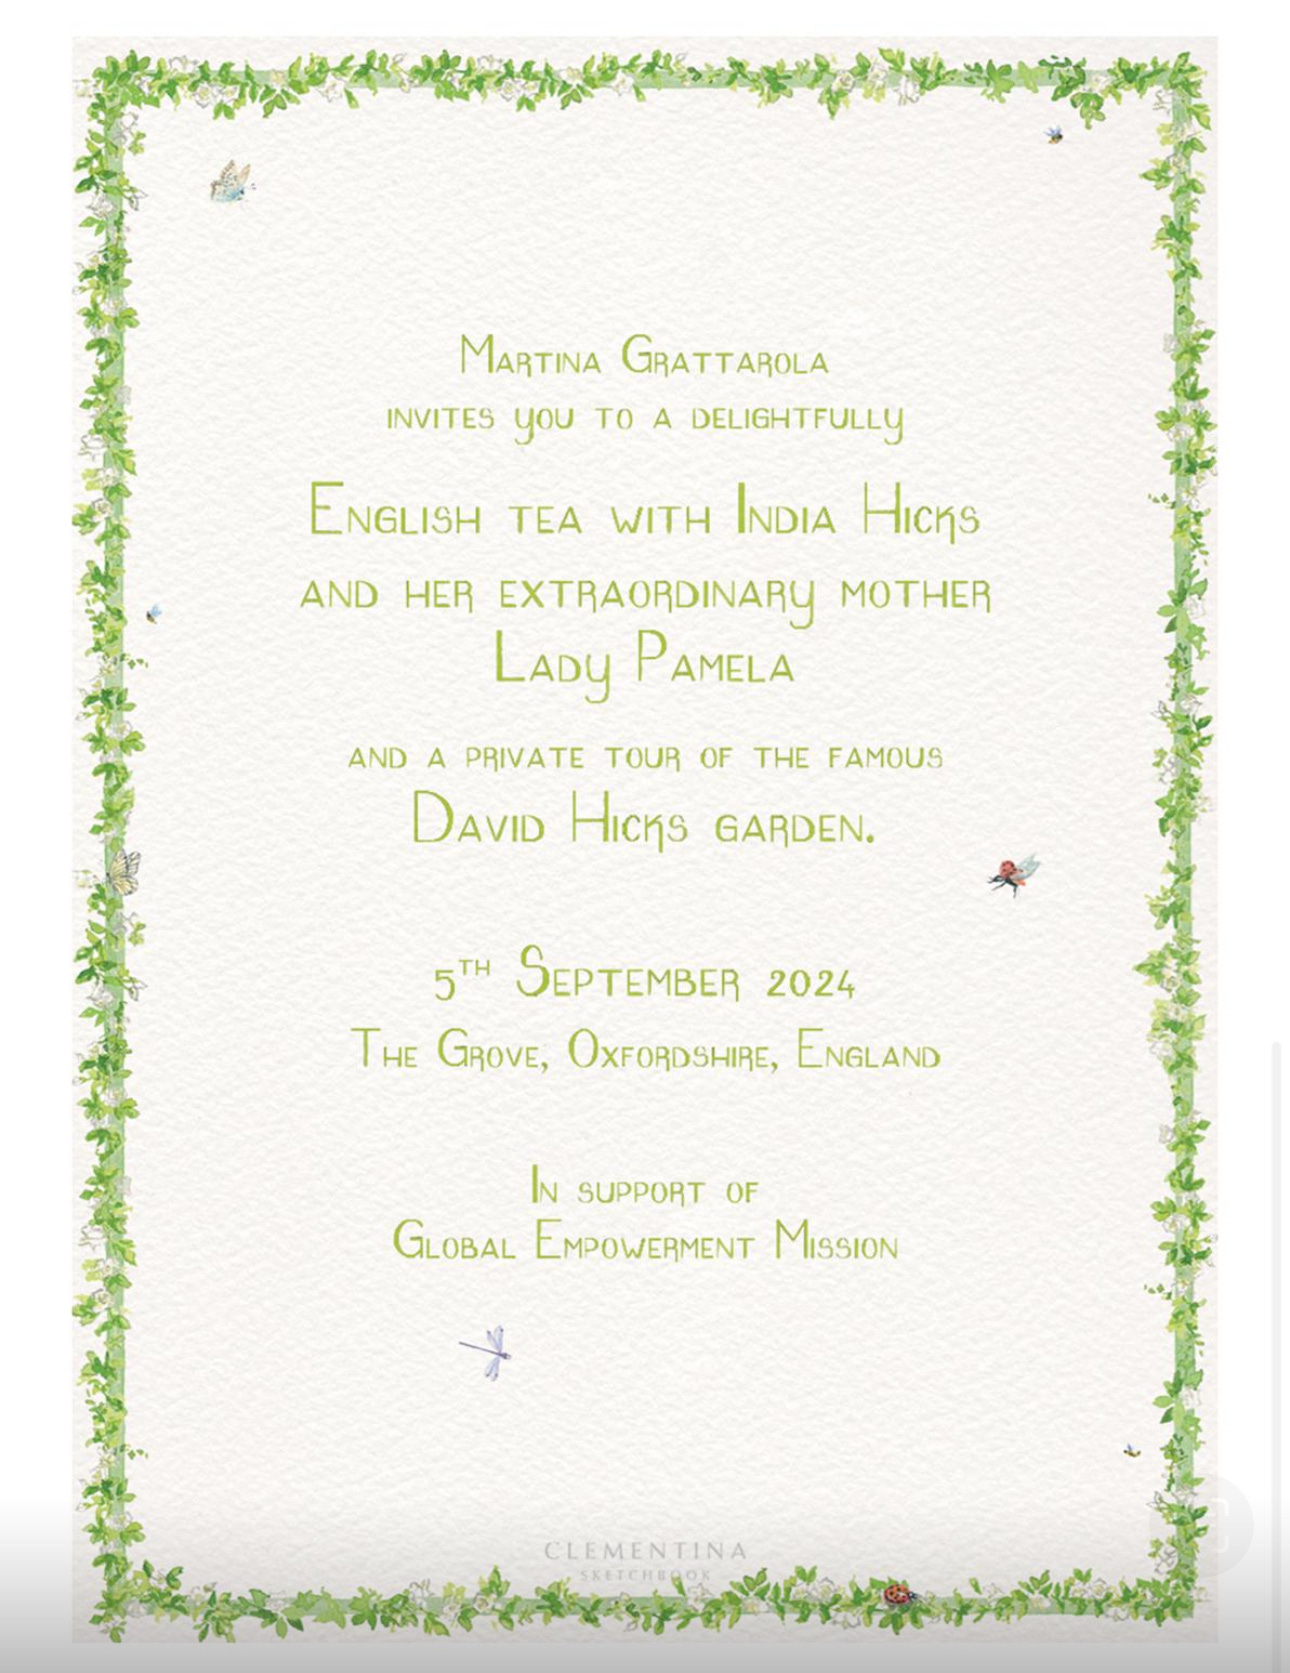 Martina Grattarola
invites you to a delightfully
English tea with India Hicks
and her extraordinary mother
Lady Pamela
and a private tour of the famous
David Hicks garden.
5TH September 2024
The Grove, Oxfordshire, England
In support of
Global Empowerment Mission
CLEMENTINA
SKETCHBOOK